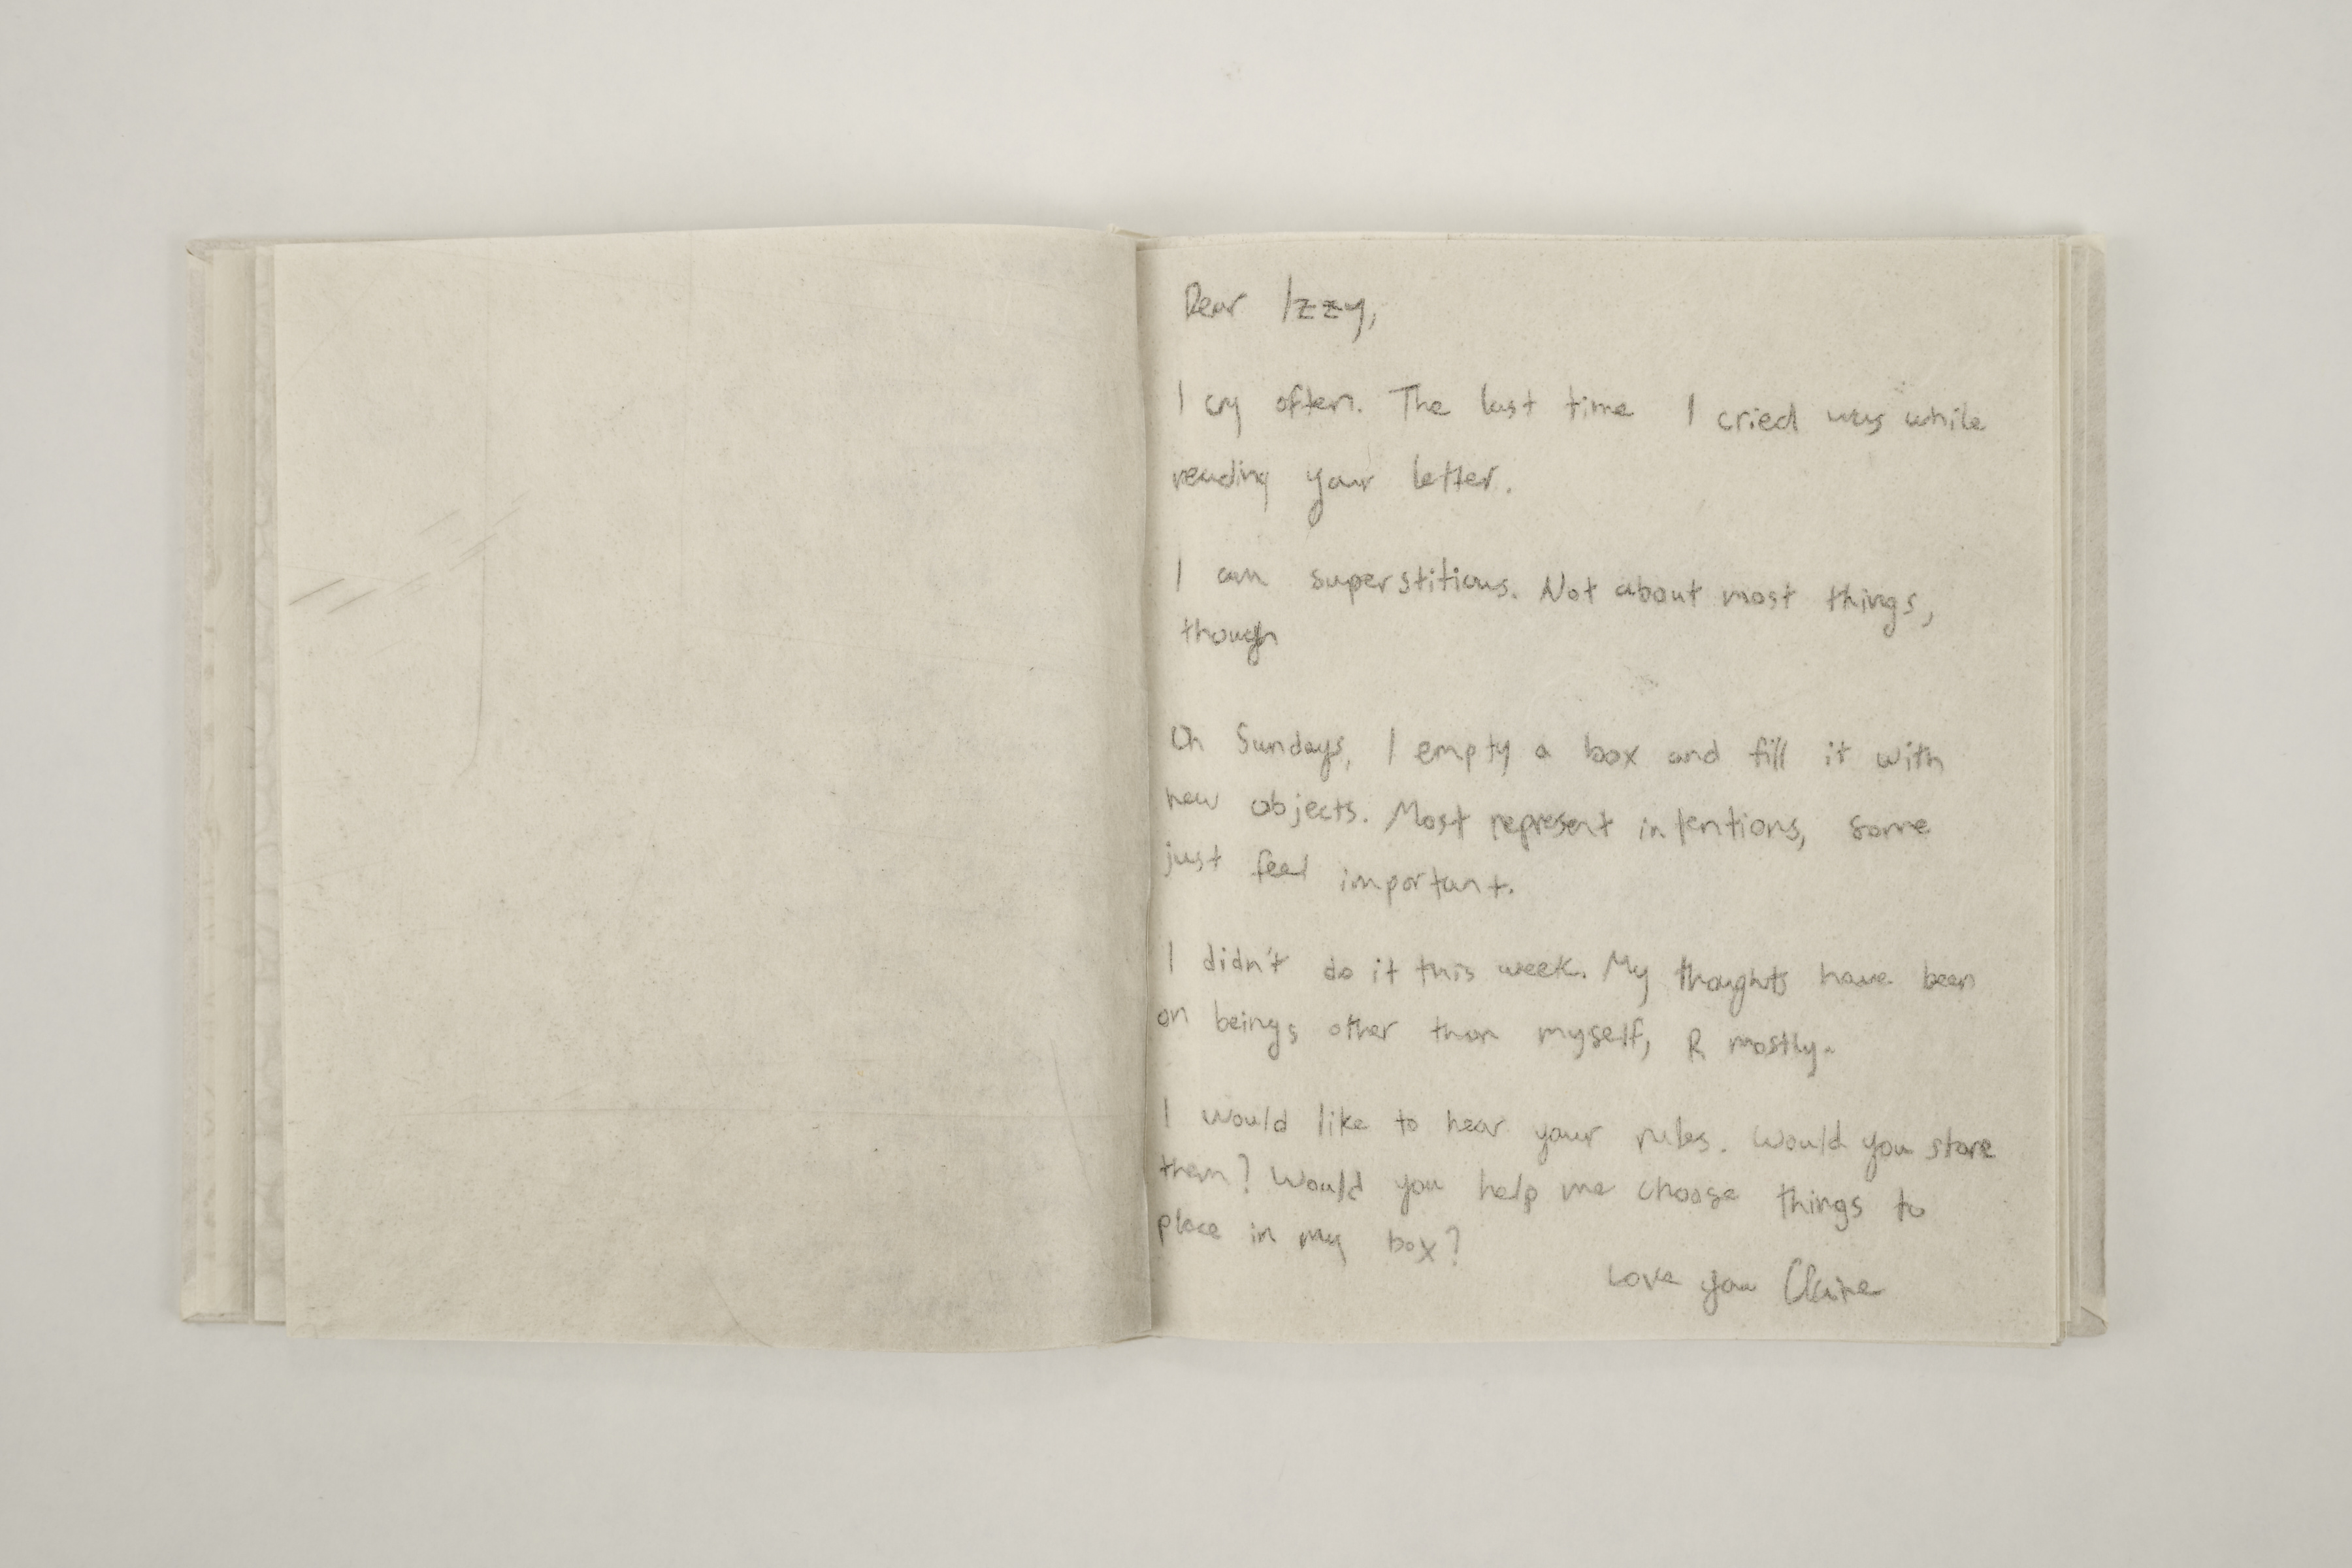 Dear Izzy,
I cry often. The last time I cried was while
reading your letter.
I am superstitious. Not about most things,
though
On Sundays, I empty a box and fill it with
new objects. Most represent intentions, some
just feel important.
I didn't do it this week. My thoughts have been
on beings other than myself, R mostly.
I would like to hear your rules. Would you store
them? Would you help me choose things to
place in my box?
Love you Claire